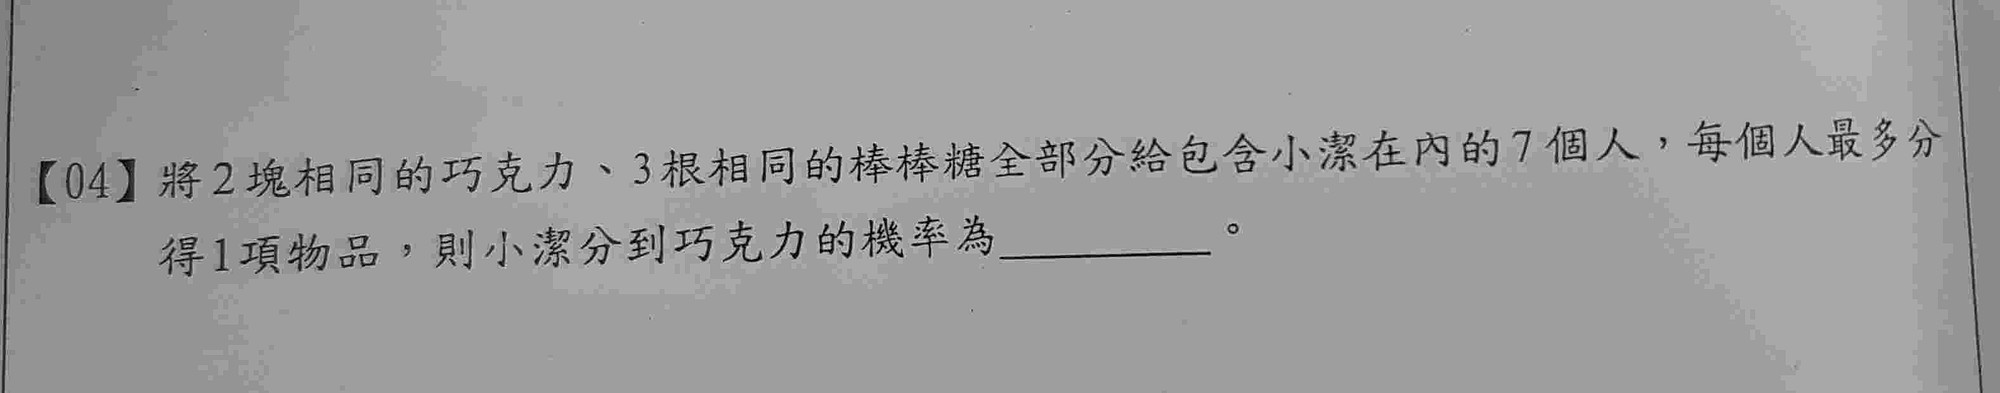 【04】將2塊相同的巧克力、3根相同的棒棒糖全部分給包含小潔在內的7個人，每個人最多分
得1項物品，則小潔分到巧克力的機率為＿＿＿＿＿。